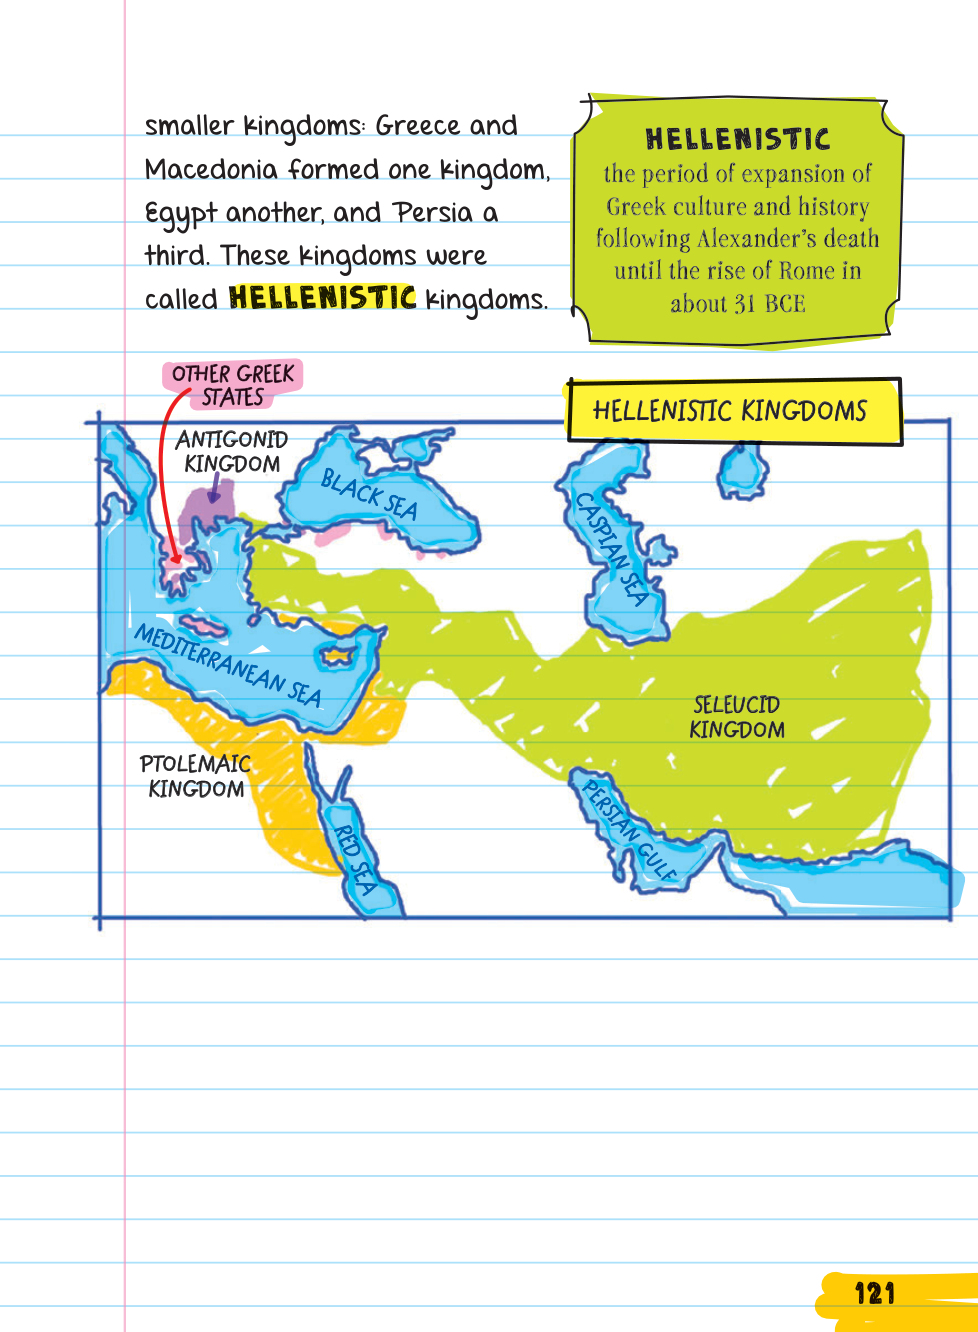 smaller kingdoms: Greece and
Macedonia formed one kingdom,
Egypt another, and Persia a
third. These kingdoms were
called HELLENISTIC kingdoms.
HELLENISTIC
the period of expansion of
Greek culture and history
following Alexander's death
until the rise of Rome in
about 31 BCE
OTHER GREEK
STATES
HELLENISTIC KINGDOMS
ANTIGONID
KINGDOM
BLACK SEA
CASPIAN SEA
MEDITERRANEAN SEA
SELEUCID
KINGDOM
PTOLEMAIC
KINGDOM
PERSIAN GULF
RED SEA
121